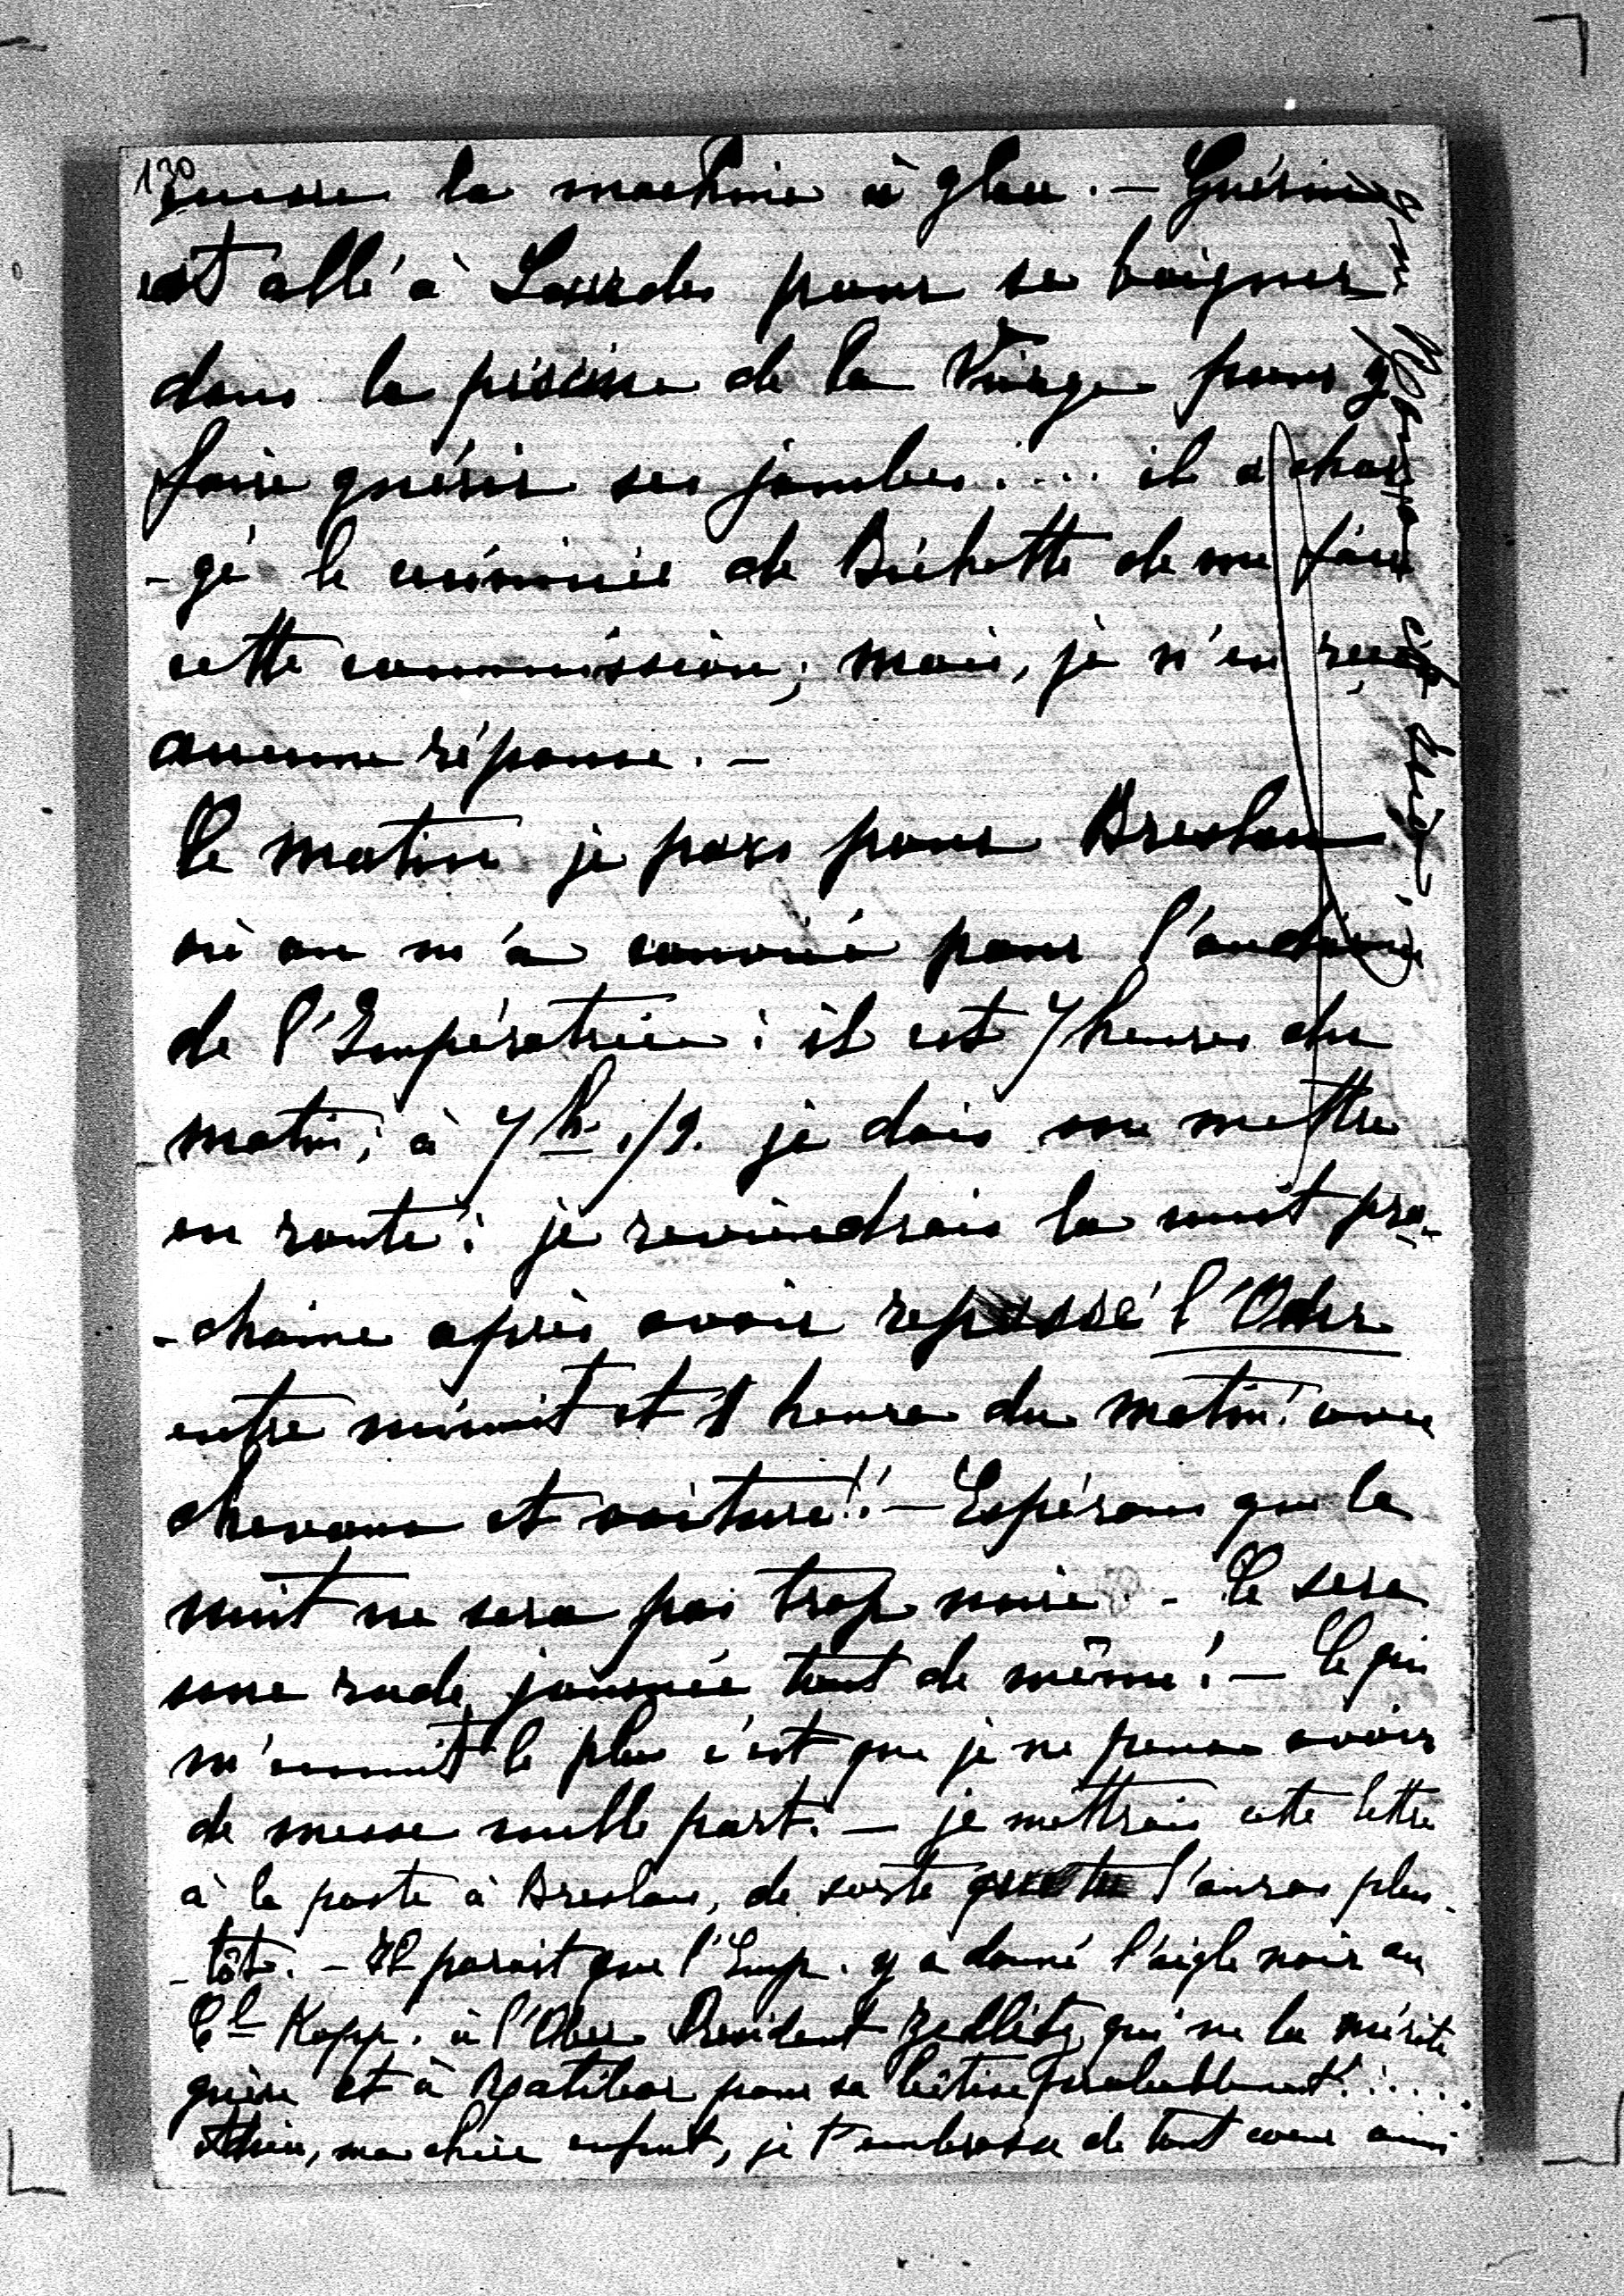 130
encore la machine à glace. — Guérin
est allé à Lourdes pour se baigner
dans la piscine de la Vierge pour y
faire guérir ses jambes.... il a char
-gé le de me faire
cette commission; mais, je n'en reçois
aucune réponse. —
Ce matin je pars pour Breslau
où on m'a convié pour l'audience
de l'Impératrice: il est 7 heures du
matin; à 7h 1/2. je dois me mettre
en route: je reviendrais la nuit pro-
-chaine après avoir repassé l'Oder
entre minuit et 1 heure du matin! avec
chevaux et voiture!! — Espérons que la
nuit ne sera pas trop noire. - Ce sera
une rude journée tout de même! — Ce qui
m'ennuit le plus c'est que je ne peux avoir
de messe nulle part. — je mettrais cette lettre
à la poste à Breslau, de sorte que tu l'auras plus-
-tôt. - Il parait que l'Emp. y a donné l'aigle noir au
Cl Kopp. à l'Ober President Zedlitz, qui ne la mérite
guère et à Ratibor pour sa bêtise probablement!....
Adieu, ma chère enfant, je t'embrasse de tout coeur ainsi